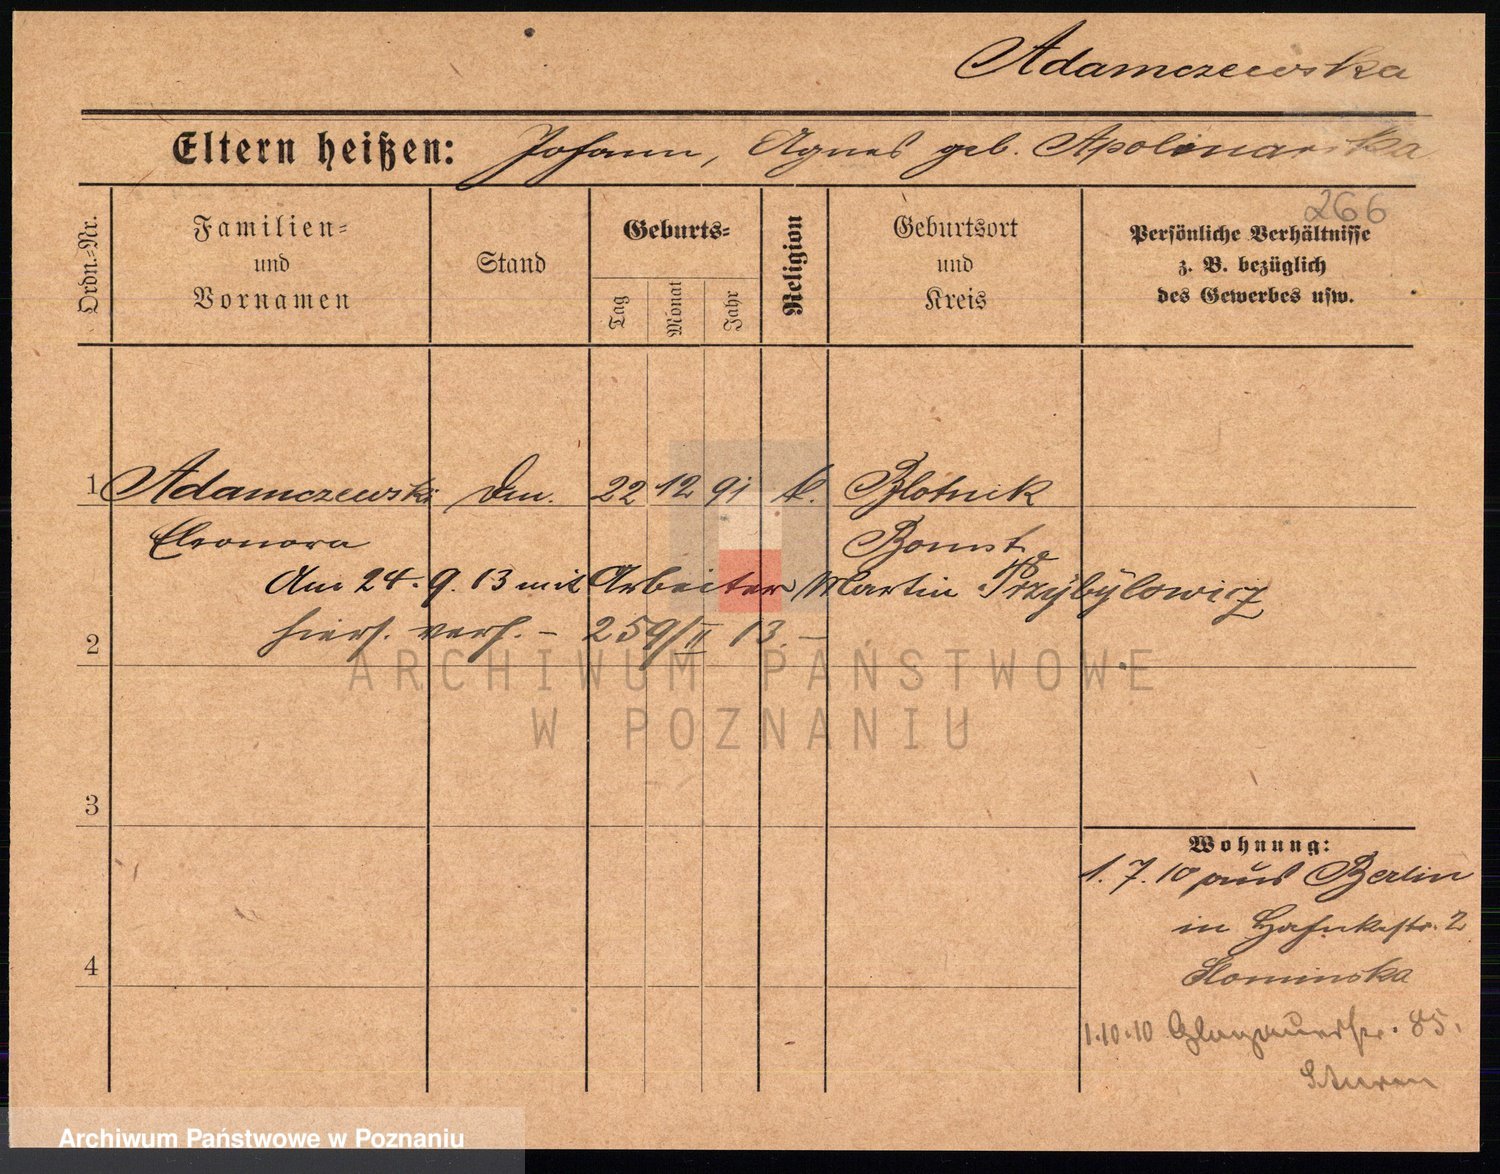 Adamczewska
Eltern heißen: Johann, Agnes geb. Apolinarska
266
Ordn.-Nr.
Familien-
und
Vornamen
Stand
Geburts-
Tag
Monat
Jahr
Religion
Geburtsort
und
Kreis
Persönliche Verhältnisse
z. B. bezüglich
des Gewerbes usw.
1 Adamczewski 22 12 91 k. Blotnik
Eleonora Bomst
Am 24.9.13 mit Arbeiter Martin Przybylowicz
hiers. verh. – 259/II 13. –
2
ARCHIWUM PAŃSTWOWE
W POZNANIU
3
Wohnung:
1.7.10 aus Berlin
in str. 2
Slominska
4
1.10.10 Glogauerstr. 85.
Archiwum Państwowe w Poznaniu